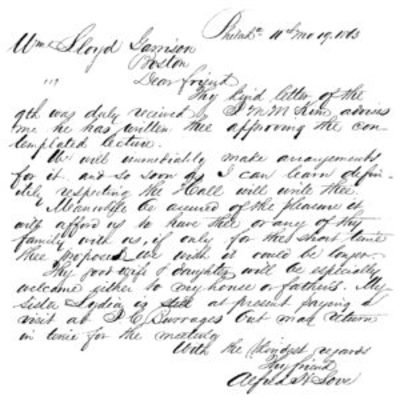 Philada 11th Mo 19. 1863
Wm Lloyd Garrison
Boston
Dear friend
Thy kind letter of the
9th was duly recieved J. M. McKim advises
me he has written thee approving the con-
templated lecture.
We will immediately make arrangements
for it. and so soon as I can learn defin-
itely respecting the Hall will write thee.
Meanwhile be assured of the pleasure it
will afford us to have thee or any of thy
family with us, if only for the short time
thee proposed we wish it could be longer.
Thy wife & daughter will be especially
welcome either to my house or fathers. My
sister Lydia is at present paying a
visit at J. C. Burrages but may return
in time for the meeting
With the kindest regards
Thy friend
Alfred H. Love